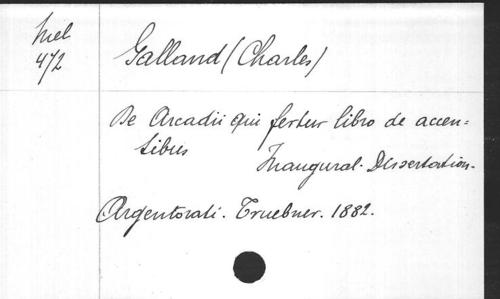 Mel
472
Galland (Charles)
De Arcadii qui fertur libro de accen=
tibus
Inaugural-Dissertation.
Argentorati. Truebner. 1882.